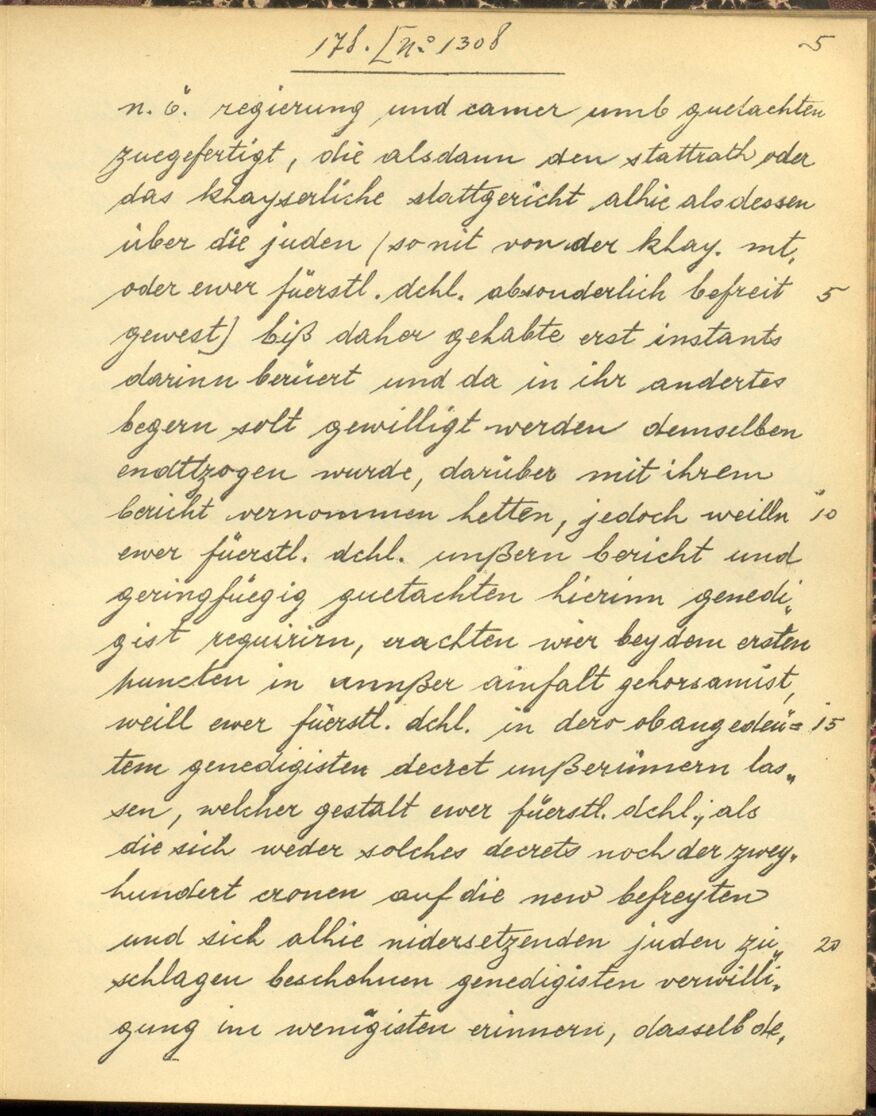 178. [n° 1308
5
n. ö. regierung und camer umb guetachten
zuegefertigt, die alsdann den stattrath oder
das khayserliche stattgericht alhie als dessen
über die juden (so nit von der khay. mt.
oder ewer füerstl. dchl. absonderlich befreit 5
gewest) biß daher gehabte erst instants
darinn berüert und da in ihr andertes
begern solt gewilligt werden demselben
endttzogen wurde, darüber mit ihrem
bericht vernommen hetten, jedoch weilln 10
ewer füerstl. dchl. unßern bericht und
geringfüegig guetachten hierinn genedi„
gist requirirn, erachten wier bey dem ersten
puncten in unnßer ainfalt gehorsamist,
weill ewer füerstl. dchl. in dero obangedeü= 15
tem genedigisten decret unß erünnern las„
sen, welcher gestalt ewer füerstl. dchl., als
die sich weder solches decrets noch der zwey„
hundert cronen auf die new befreyten
und sich alhie nidersetzenden juden zu„ 20
schlagen beschehnen genedigisten verwilli„
gung im wenigisten erinnern, dasselb de„